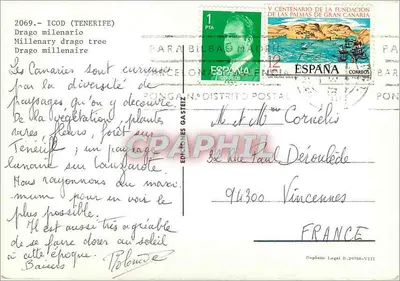 2069.- ICOD (TENERIFE)
Drago milenario
Millenary drago tree
Drago millenaire
Les Canaries sont curieuses
par la diversité de
paysages, qu'on y découvre.
De la végétation, plantes
rares, fleurs, forêt sur
Ténérife, un paysage
lunaire sur Lanzarote.
Nous rayonnons au maxi
mum pour en voir le
plus possible.
Il est aussi très agréable
de se faire dorer au soleil
à cette époque.
Baisers
EDICIONES GASTEIZ
1
PTA
ESPAÑA
V CENTENARIO DE LA FUNDACION
DE LAS PALMAS DE GRAN CANARIA
12
ESPAÑA
CORREOS
PARA BILBAO MADRID
BARCELONA VALENCIA
PONGA Nº DISTRITO POSTAL
CPHPHTI
M. et Mme Cornelis
rue Paul Déroulède
94300 Vincennes
FRANCE
Depósito Legal B.